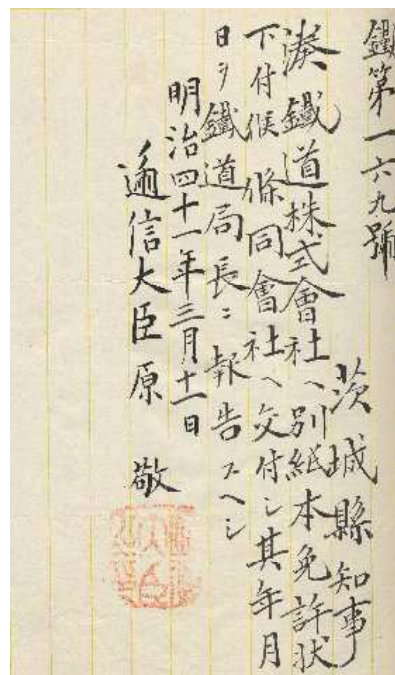 鐵第一六九號
茨城縣知事
湊鐵道株式會社ヘ別紙本免許狀
下付候條同會社ヘ交付シ其年月
日ヲ鐵道局長ニ報告スヘシ
明治四十一年三月十一日
遞信大臣原敬